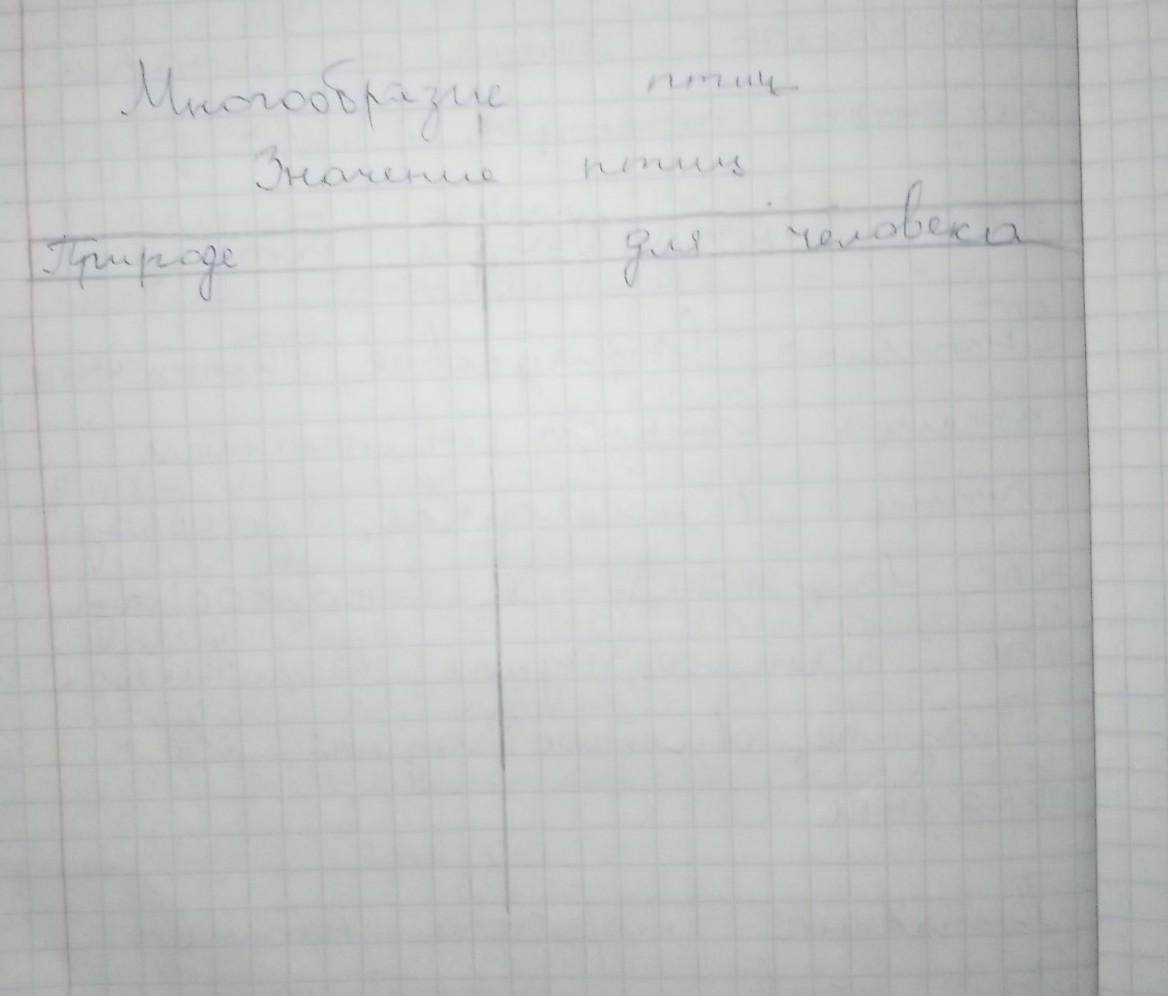 Многообразие птиц
Значение птиц
Природе для человека